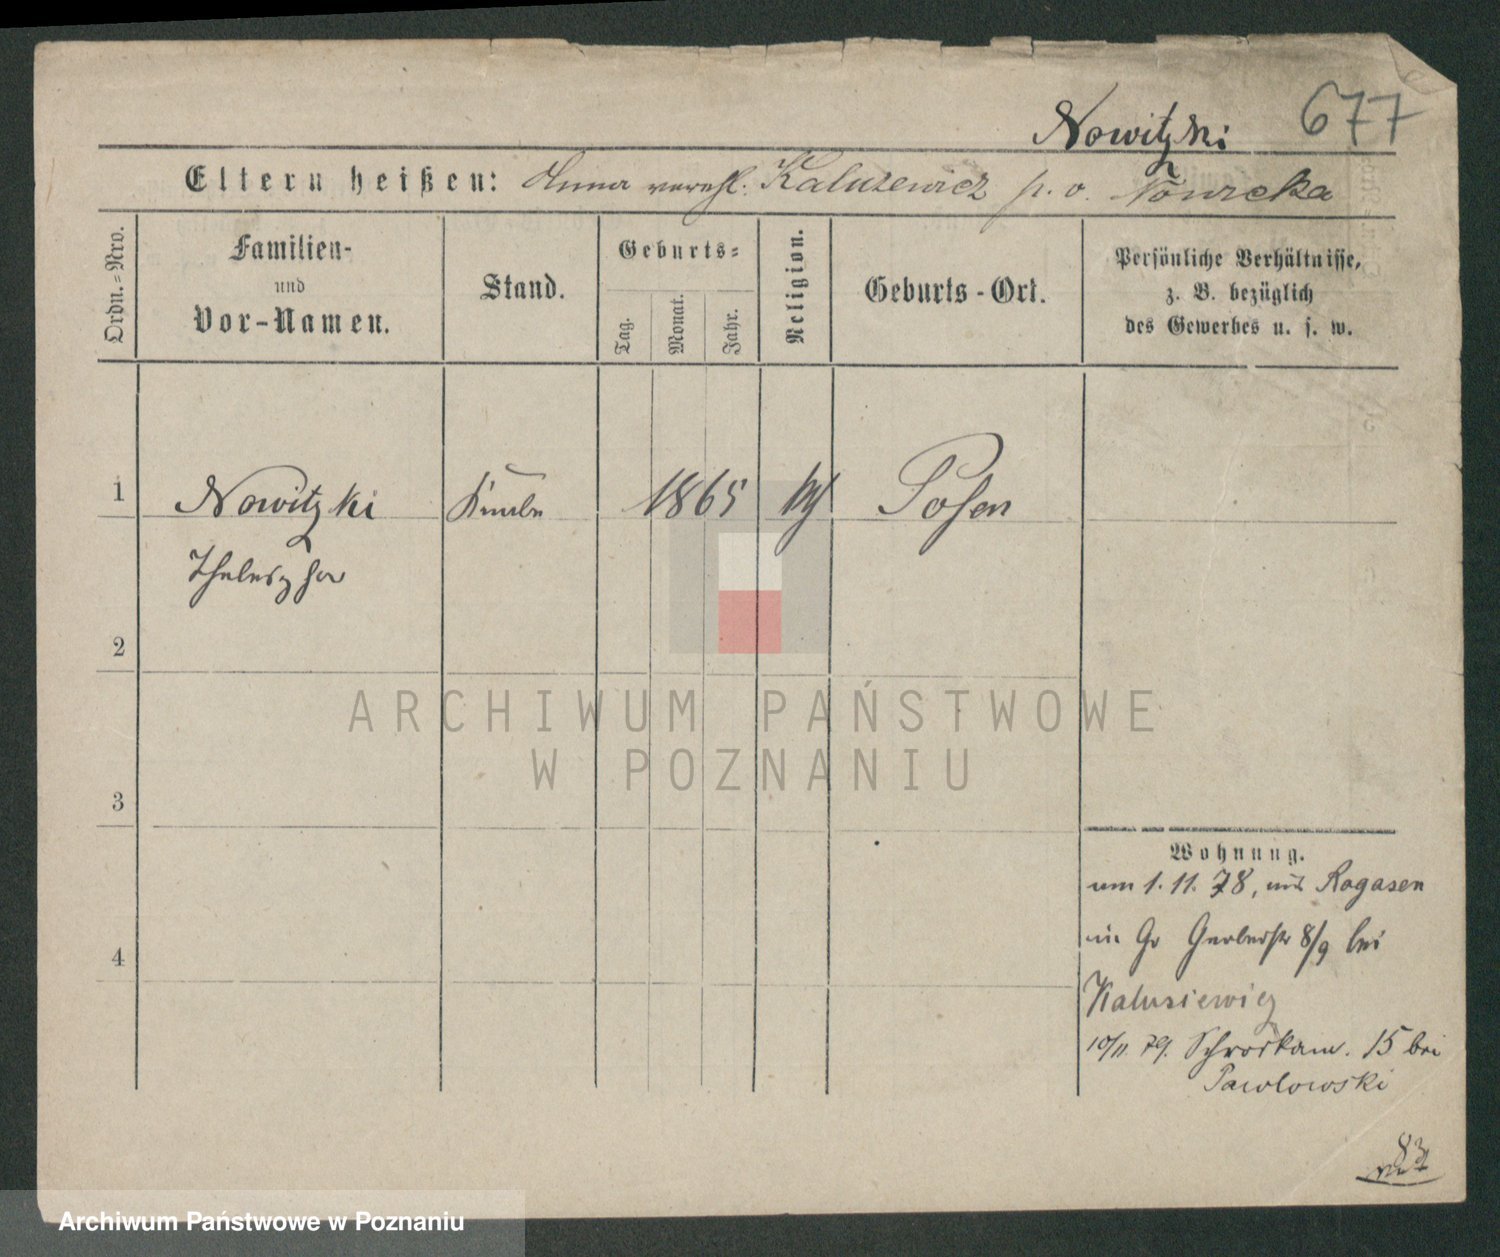 677
Nowitzki
Eltern heißen: Anna verehl. Kaluzewicz p. v. Nowicka
Ordn.-Nro.
Familien-
und
Vor-Namen.
Stand.
Geburts-
Tag.
Monat.
Jahr.
Religion.
Geburts-Ort.
Persönliche Verhältnisse,
z. B. bezüglich
des Gewerbes u. s. w.
1 Nowitzki Knabe 1865 Posen
2
3
4
Wohnung.
am 1. 11. 78, aus Rogasen
in Gr Gerberstr 8/9 bei
Kalusiewicz
10/11. 79. Schrodkam. 15 bei
Pawlowski
83
ARCHIWUM PAŃSTWOWE
W POZNANIU
Archiwum Państwowe w Poznaniu